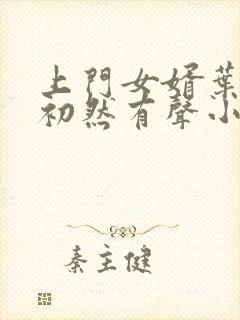 上門女婿葉
初然有聲小
秦主健